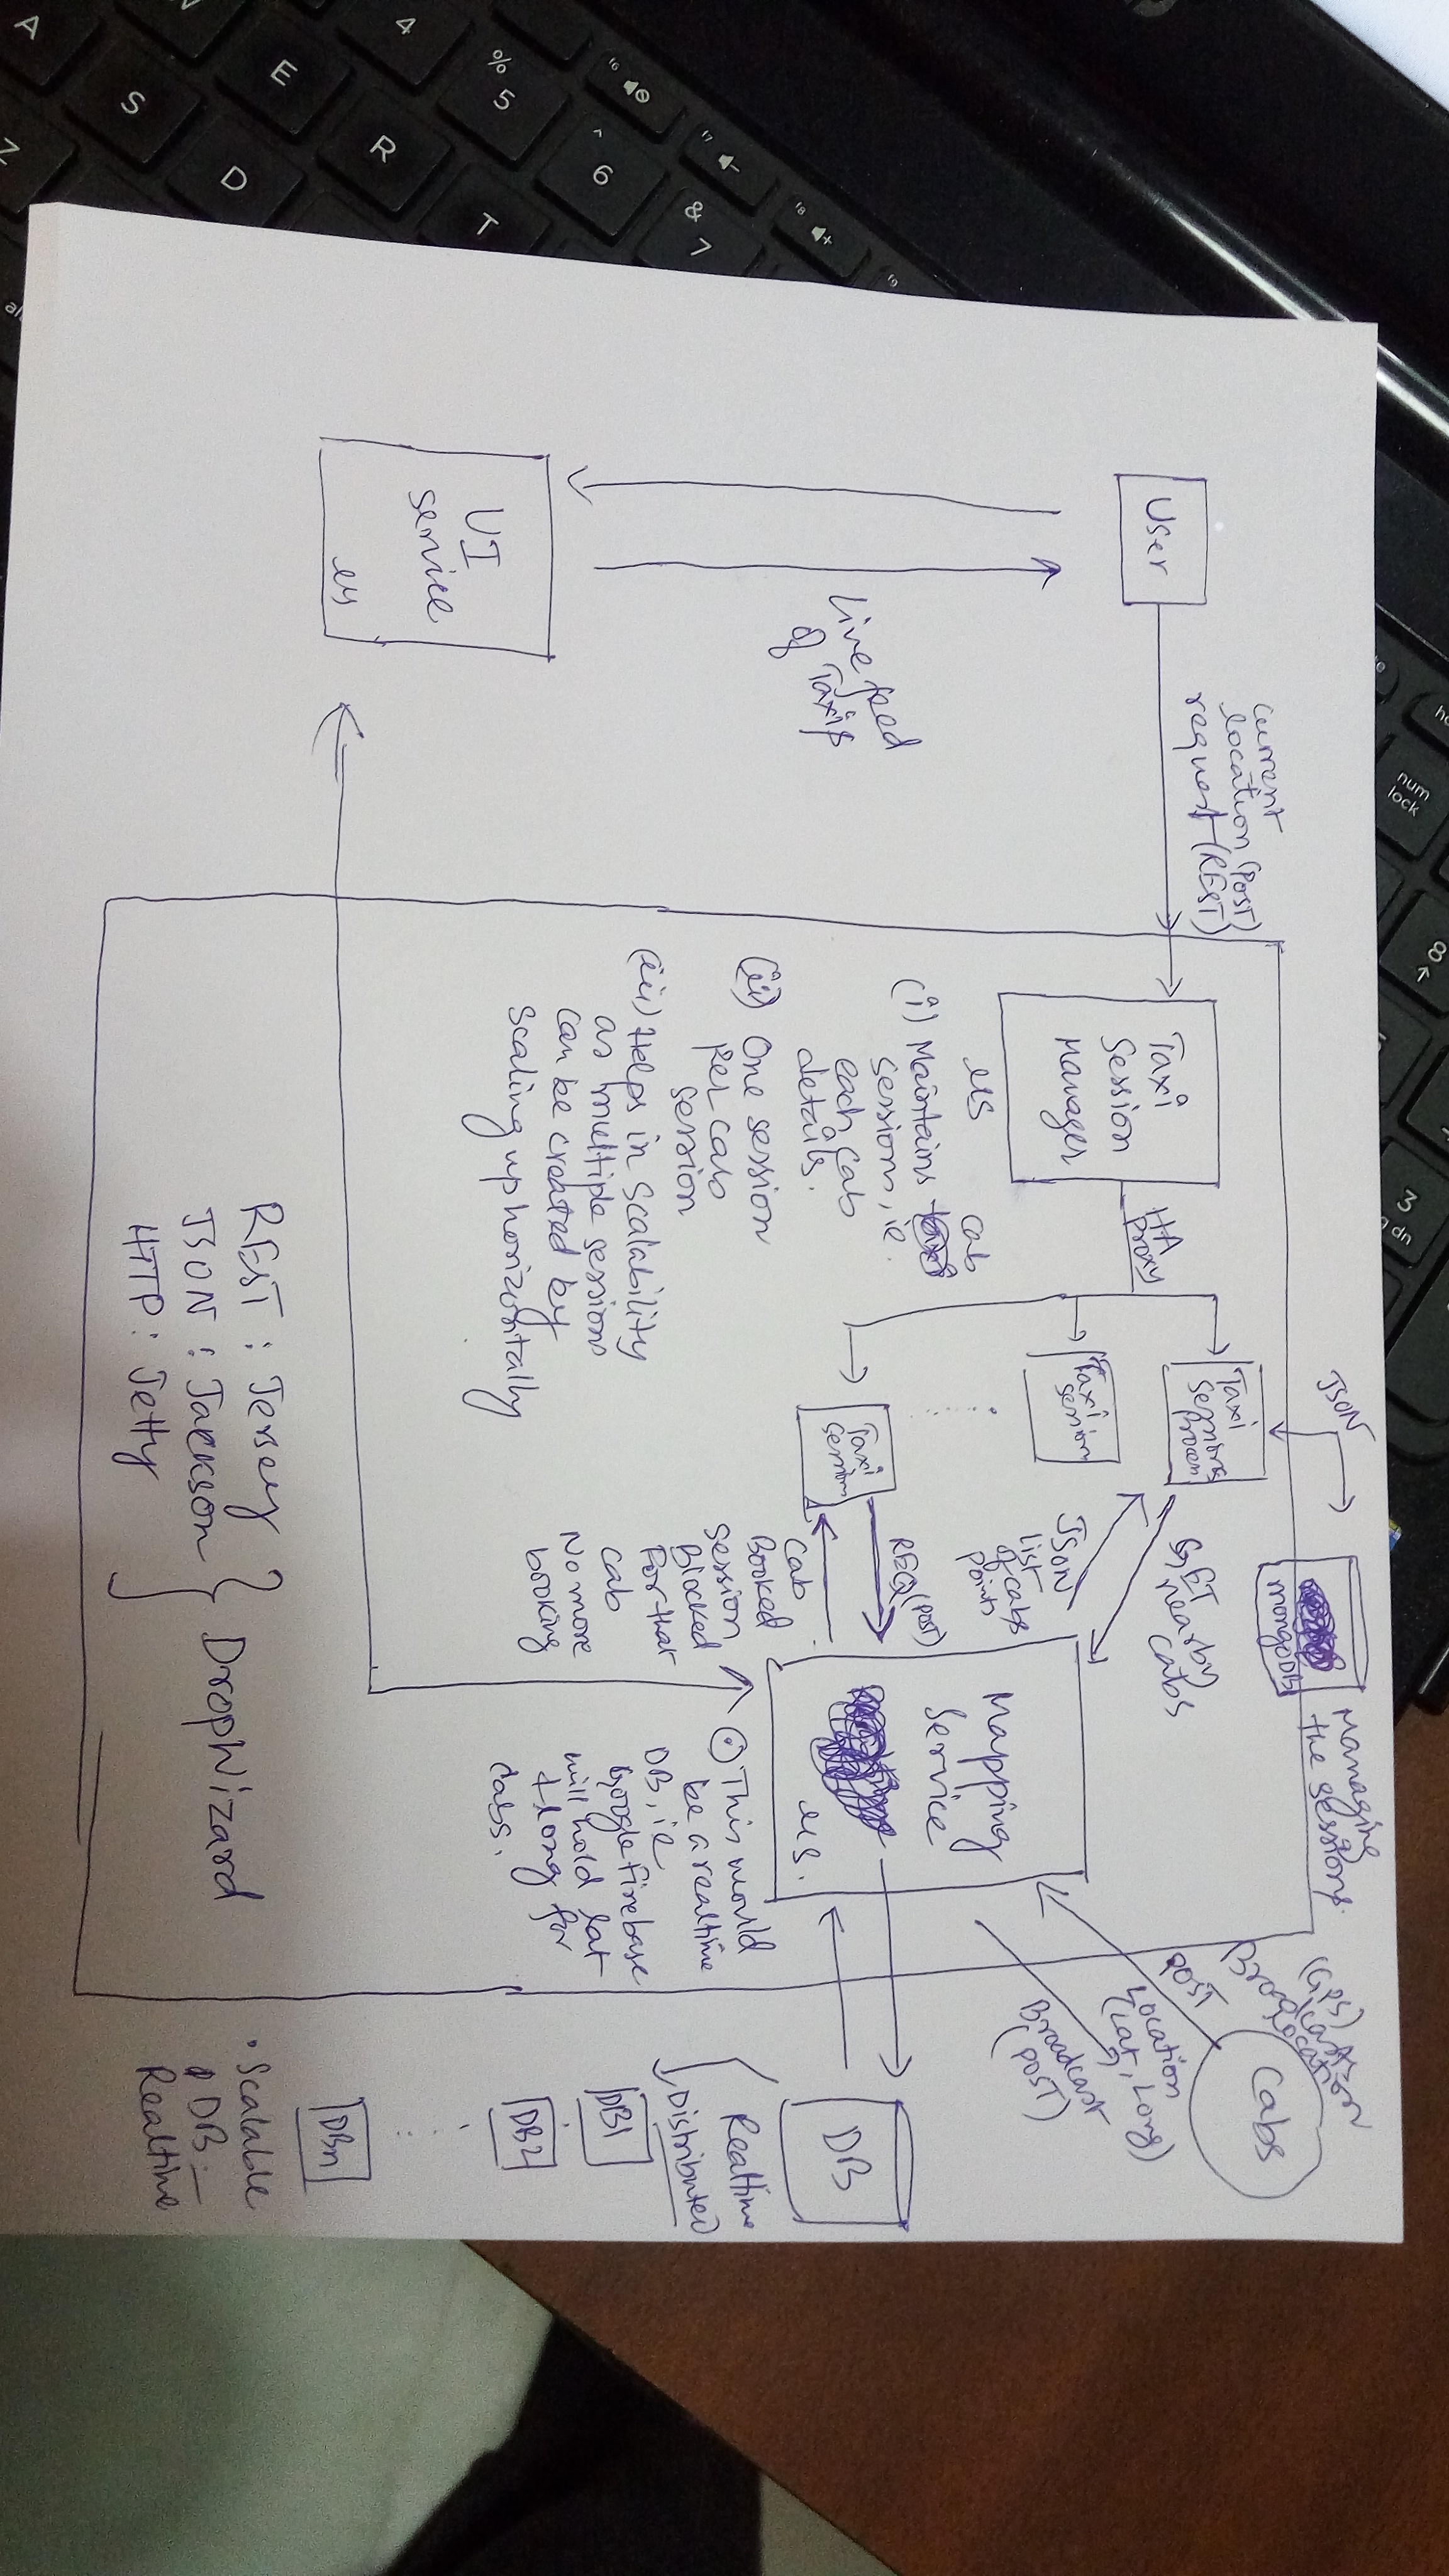 User
current
location (Post)
request (REST)
Live feed
of Taxis
UI
service
MS
Taxi
Session
Manager
MS
(i) Maintains cab
sessions, ie.
each cab
details.
(ii) One session
per cab
session
(iii) Helps in Scalability
as multiple sessions
can be created by
scaling up horizontally
HA
Proxy
Taxi
Sessions
Taxi
session
Taxi
session
JSON
mongodb
Managing
the sessions.
GET
nearby
cabs
JSON
list
of cabs
points
REQ(POST)
Cab
Booked
session
Blocked
For that
cab
No more
booking
Mapping
Service
MS.
This would
be a realtime
DB, ie
Google Firebase
will hold lat
+ long for
cabs.
Cabs
(GPS)
Broadcast
Location
POST
Location
(Lat, Long)
Broadcast
(POST)
DB
Realtime
Distributed
DB1
DB2
DBn
• Scalable
• DB -
Realtime
REST : Jersey
JSON : Jackson
HTTP : Jetty
DropWizard
A
S
D
Z
E
R
T
4
%
5
^
6
&
7
8
num
lock
3